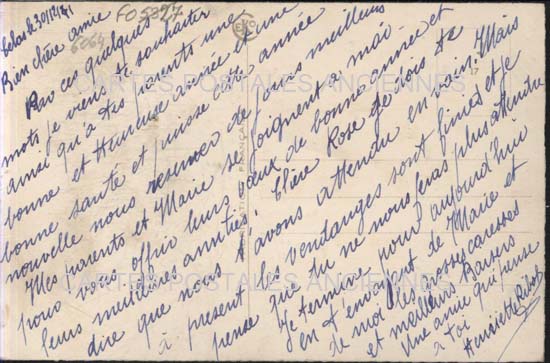 le 30/12/41
FO 5327
6064
Bien chère amie
Par ces quelques
mots je viens te souhaiter
ainsi qu'à tes parents une
bonne et Heureuse année et une
bonne santé et puisse cette année
nouvelle nous réserver de jours meilleurs
Mes parents et Marie se joignent a moi
pour vous offrir leurs vœux de bonne année et
leurs meilleures amitiés. Chère Rose je dois te
dire que nous t'avons attendu en vain. Mais
à présent les vendanges sont finies et je
pense que tu ne nous feras plus attendre
Je termine pour aujourd'hui
en t'envoyant de Marie et
de moi les grosses caresses
et meilleurs Baisers
Une amie qui pense
à toi
Henriette
CARTES POSTALES ANCIENNES
CARTES POSTALES ANCIENNES